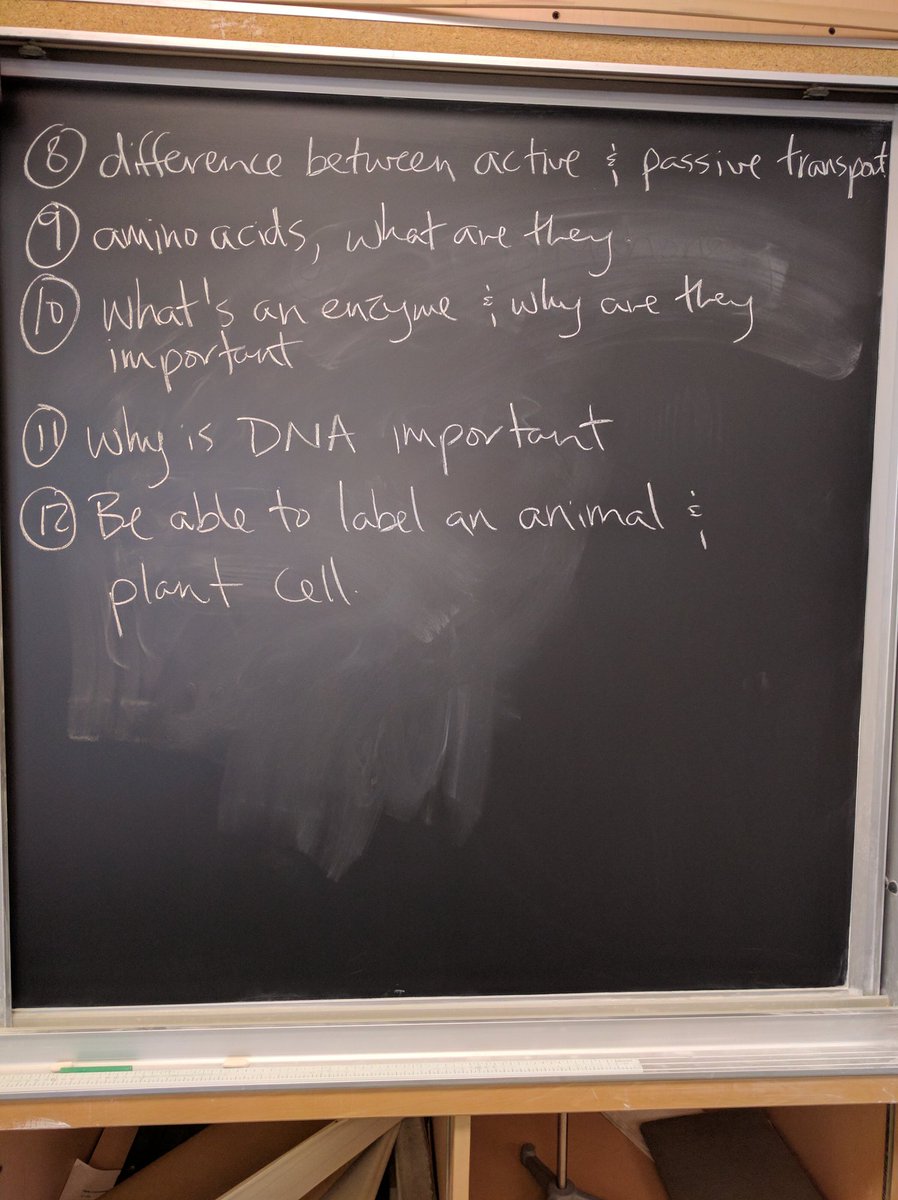 ⑧ difference between active & passive transport
⑨ amino acids, what are they.
⑩ What's an enzyme & why are they
important
⑪ why is DNA important
⑫ Be able to label an animal &
plant cell.